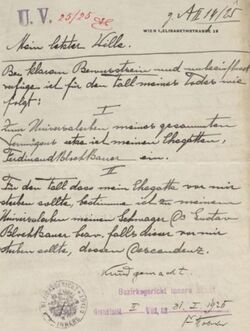 U. V. 25/25
g A II 14/25
WIEN I, ELISABETHSTRASSE 18
Mein letzter Wille.
Bei klarem Bewusstsein und unbeeinflusst
verfüge ich für den Fall meines Todes wie
folgt:
I
Zum Universalerben meines gesammten
Vermögens setze ich meinen Ehegatten,
Ferdinand Bloch Bauer ein.
II
Für den Fall dass mein Ehegatte vor mir
sterben sollte, bestimme ich zu meinem
Universalerben meinen Schwager Dr Gustav
Bloch Bauer bezw. falls dieser vor mir
sterben sollte, dessen Descendenz.
Kundgemacht.
Bezirksgericht Innere Stadt
I am 31/I 1925